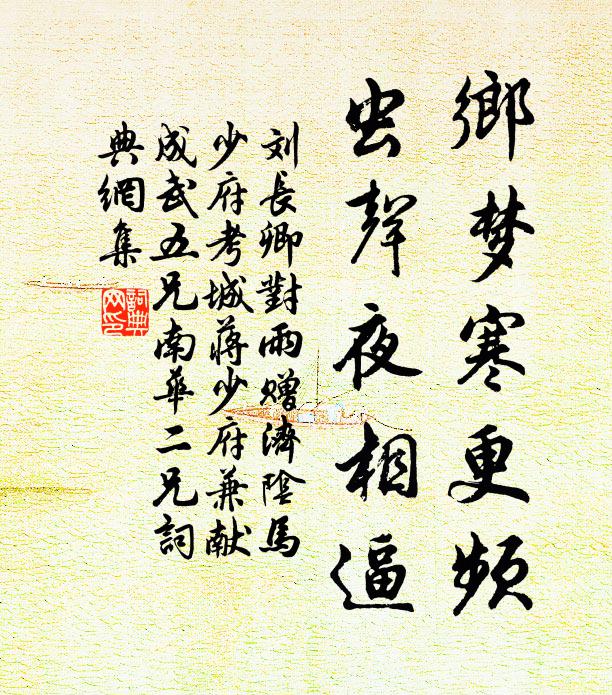 鄉梦寒更频
虫聲夜相逼
刘長卿對雨赠濟陰馬
少府考城蒋少府兼献
成武五兄南华二兄詞
典網集
詞典
网印